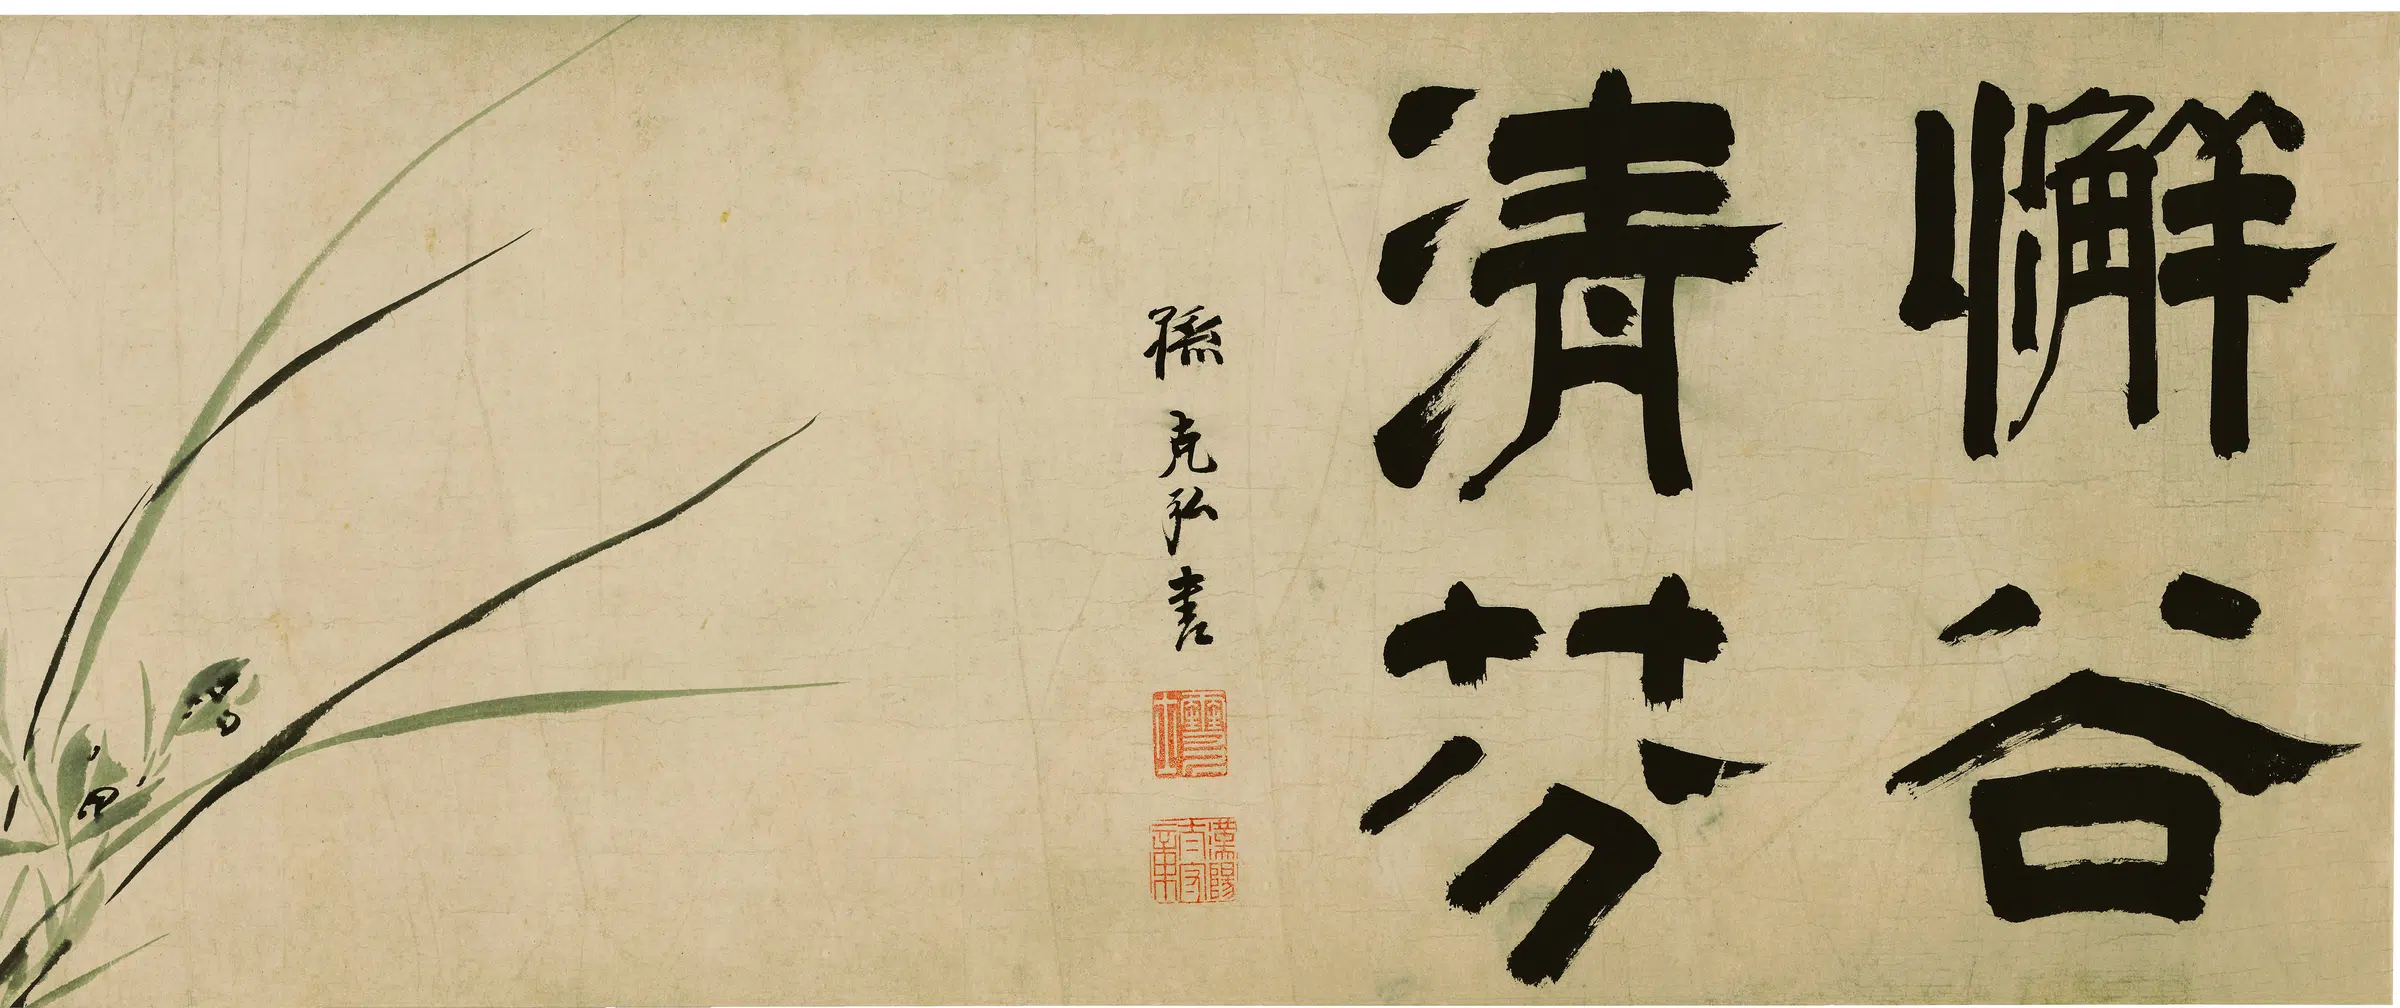 嶰谷
清芬
孫克弘書